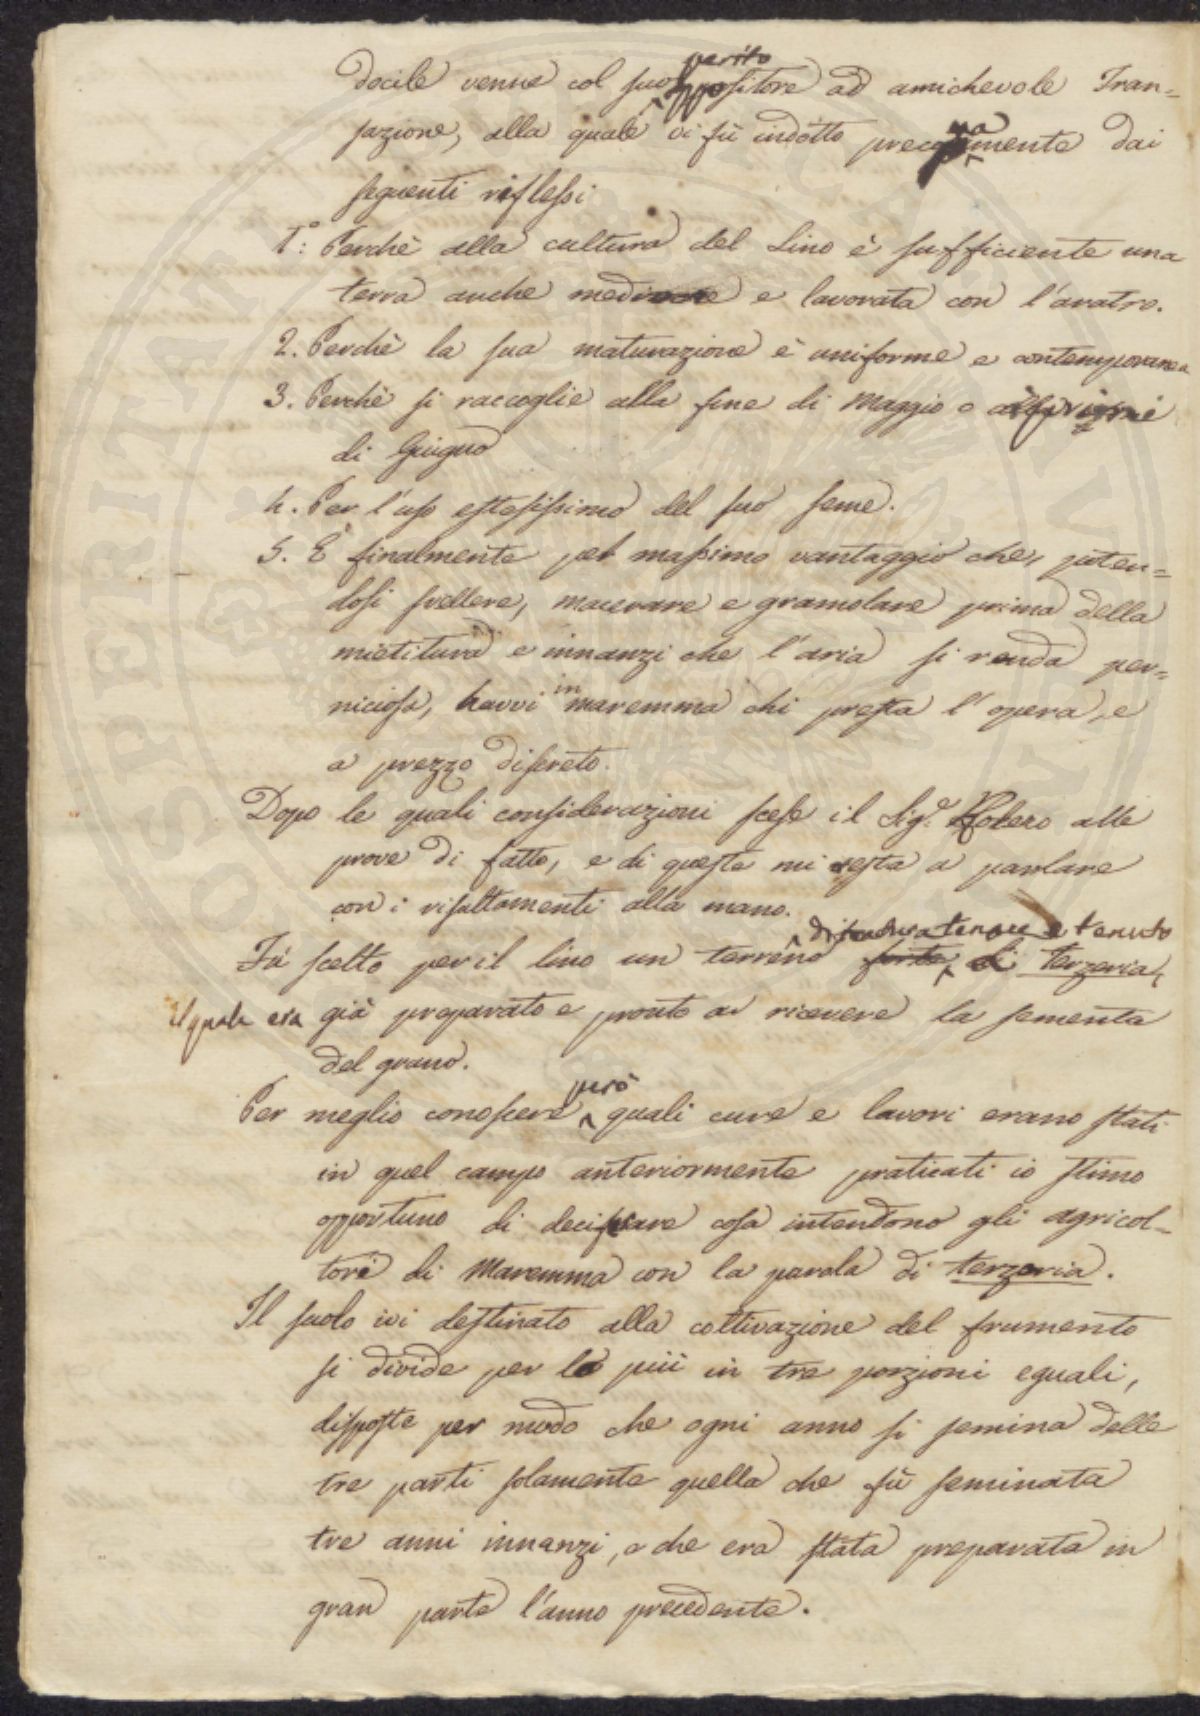 perito
docile venne col suo oppositore ad amichevole Tran=
sazione, alla quale vi fù indotto precipuamente dai
seguenti riflessi
1.° Perchè alla cultura del Lino è sufficiente una
terra anche mediocre e lavorata con l'aratro.
2. Perchè la sua maturazione è uniforme e contemporanea
3. Perchè si raccoglie alla fine di Maggio o ai primi
di Giugno
4. Per l'uso estesissimo del suo seme.
5. E finalmente pel massimo vantaggio che, poten=
dosi svellere, macerare e gramolare prima della
mietitura e innanzi che l'aria si renda per=
niciosa, havvi in maremma chi presta l'opera, e
a prezzo discreto.
Dopo le quali considerazioni scese il Sig.r alle
prove di fatto, e di queste mi resta a parlare
con i risultamenti alla mano.
di natura tenace e tenuto
Fù scelto per il lino un terreno forte di terzeria,
il quale era già preparato e pronto a ricevere la sementa
del grano.
Per meglio conoscere però quali cure e lavori erano stati
in quel campo anteriormente praticati io stimo
opportuno di decifrare cosa intendono gli agricol=
tori di Maremma con la parola di terzeria.
Il suolo ivi destinato alla coltivazione del frumento
si divide per lo più in tre porzioni eguali,
disposte per modo che ogni anno si semina delle
tre parti solamente quella che fù seminata
tre anni innanzi, e che era stata preparata in
gran parte l'anno precedente.